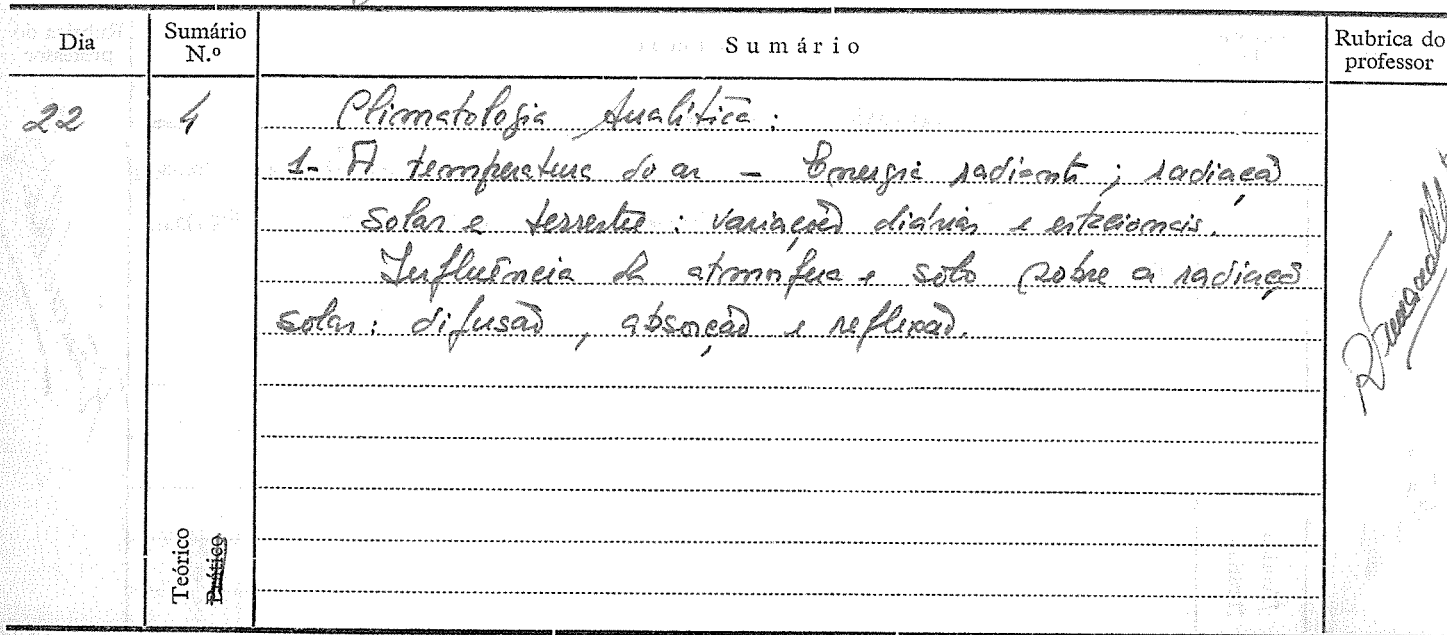 Dia
Sumário
N.º
Sumário
Rubrica do
professor
22
4
Climatologia Analítica:
1- A temperatura do ar - Energia radiante; radiação
solar e terrestre: variações diárias e estacionais.
Influência da atmosfera e solo sobre a radiação
solar: difusão, absorção e reflexão.
Teórico
Prático